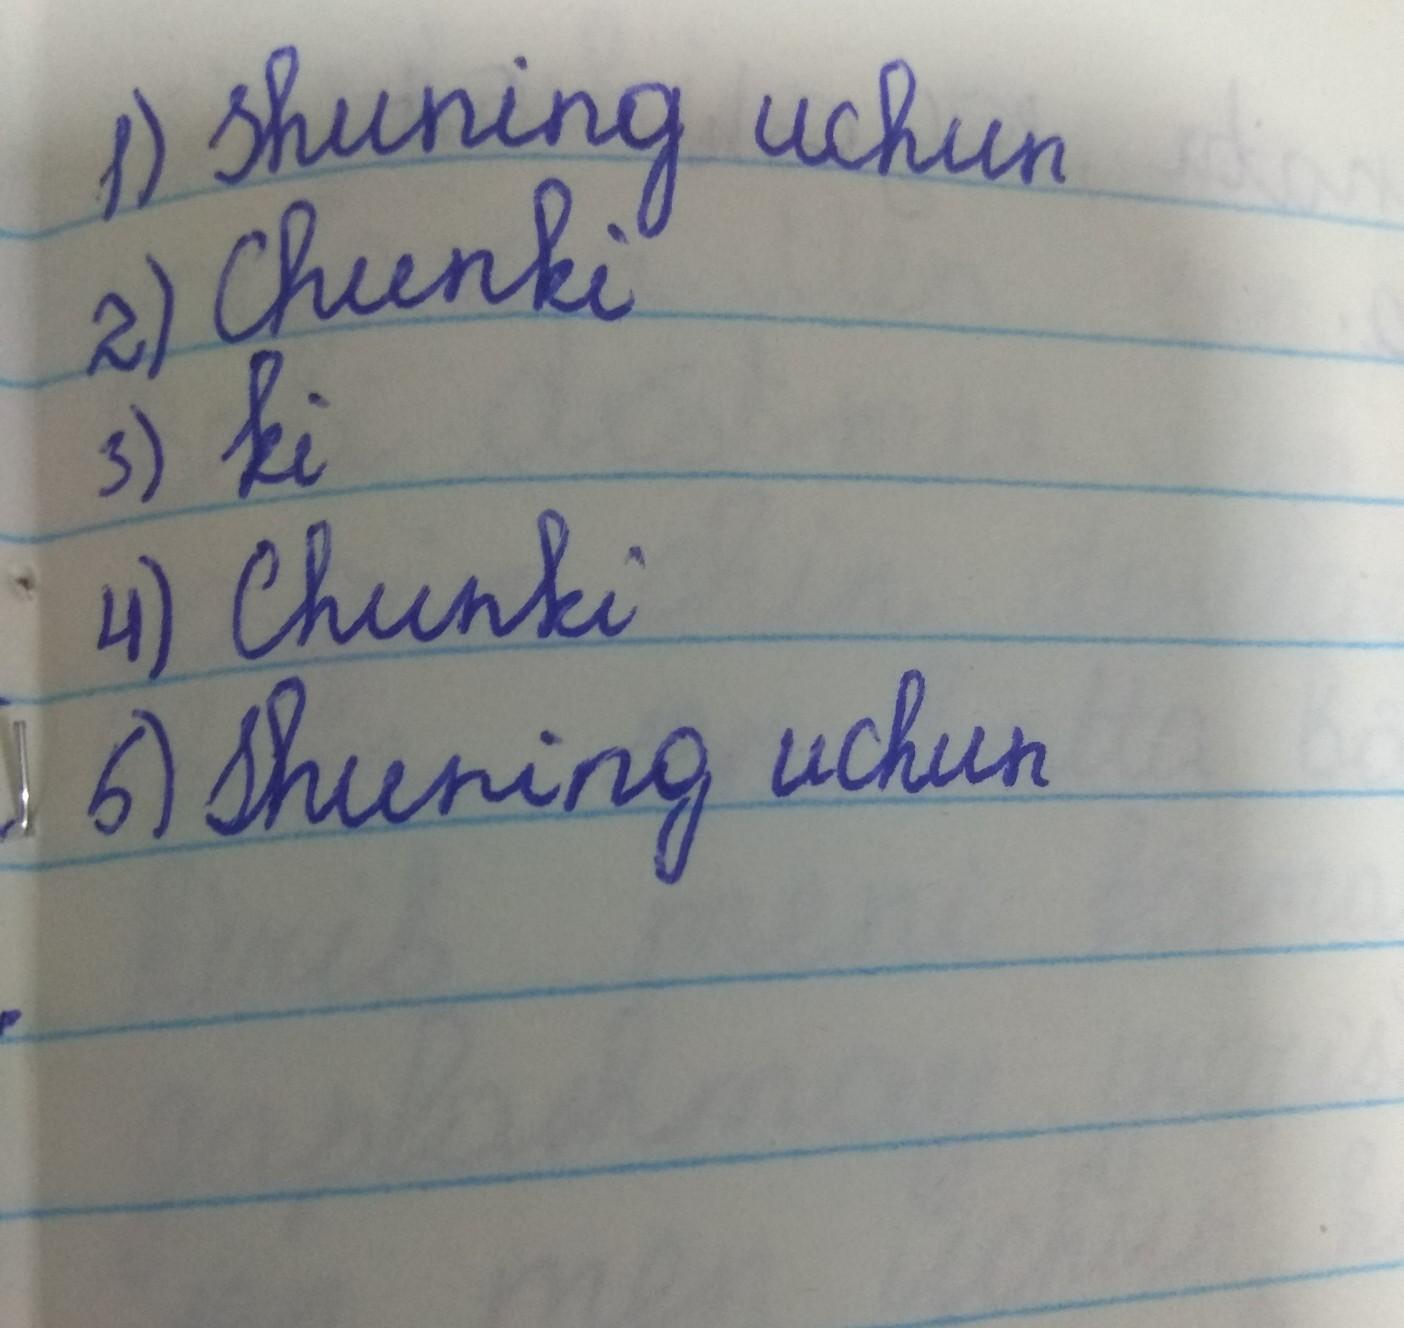 1) Shuning uchun
2) Chunki
3) ki
4) Chunki
5) Shuning uchun